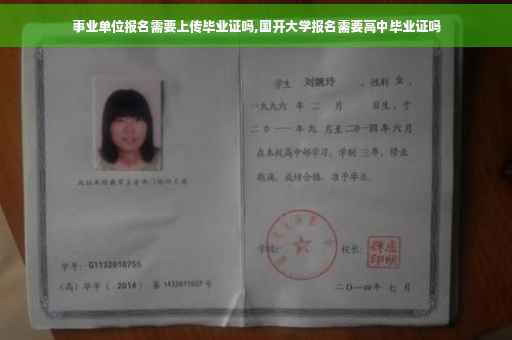 事业单位报名需要上传毕业证吗,国开大学报名需要高中毕业证吗
学生 刘婉玲 ，性别 女 ，
一九九六 年 二 月 日生，于
二○一一 年 九 月至 二○一四 年 六 月
在本校高中部学习，学制 三 年，修业
期满，成绩合格，准予毕业。
学号： G1132010755
（高）毕字（ 2014 ）第 1432011027 号
学校： 校长：
二○一四年 七 月